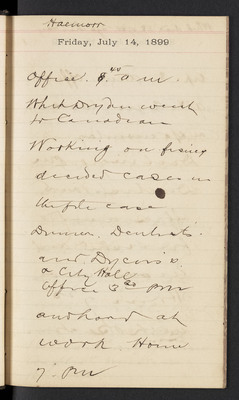 Friday, July 14, 1899
Office. 9 40 a m.
Whit Dryden went
to Canadian
Working on
decided cases in
the file case
Dinner. Dentist's
and
& City Hall
Office 3 pm
and hard at
work Home
7. PM